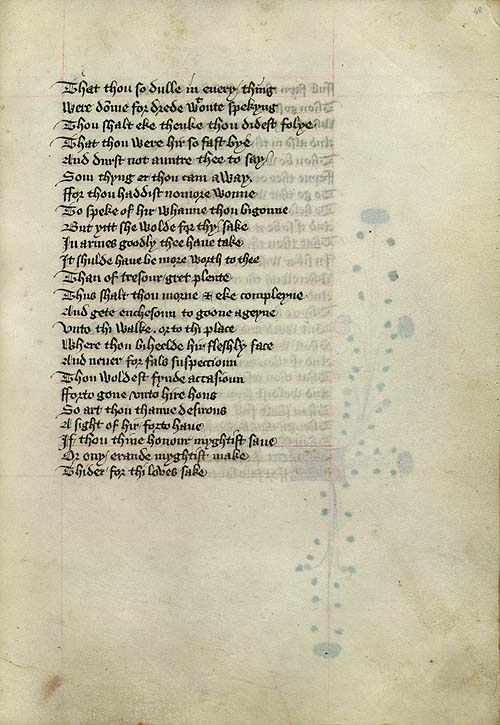 That thou so dulle in every thing
Were dome for drede wante spekyng
Thou shalt eke thenke thou didest folye
That thou were hir so fast bye
And durst not auntre thee to say
Som thyng er thou cam away
ffor thou haddist nomore wonne
To speke of hir whanne thou bigonne
But yitt she wolde for thy sake
In armes goodly thee have take
It shulde have be more worth to thee
Than of tresour gret plente
Thus shalt thou morne & eke compleyne
And gete enchesoun to goone ageyne
Unto thi walke. or to thi place
Where thou biheelde hir fleshly face
And never for fals suspectioun
Thou woldest fynde accasioun
fforto gone unto hire hous
So art thou thanne desirous
A sight of hir forto have
If thou thine honour myghtist save
Or ony erande myghtist make
Thider for thi loves sake